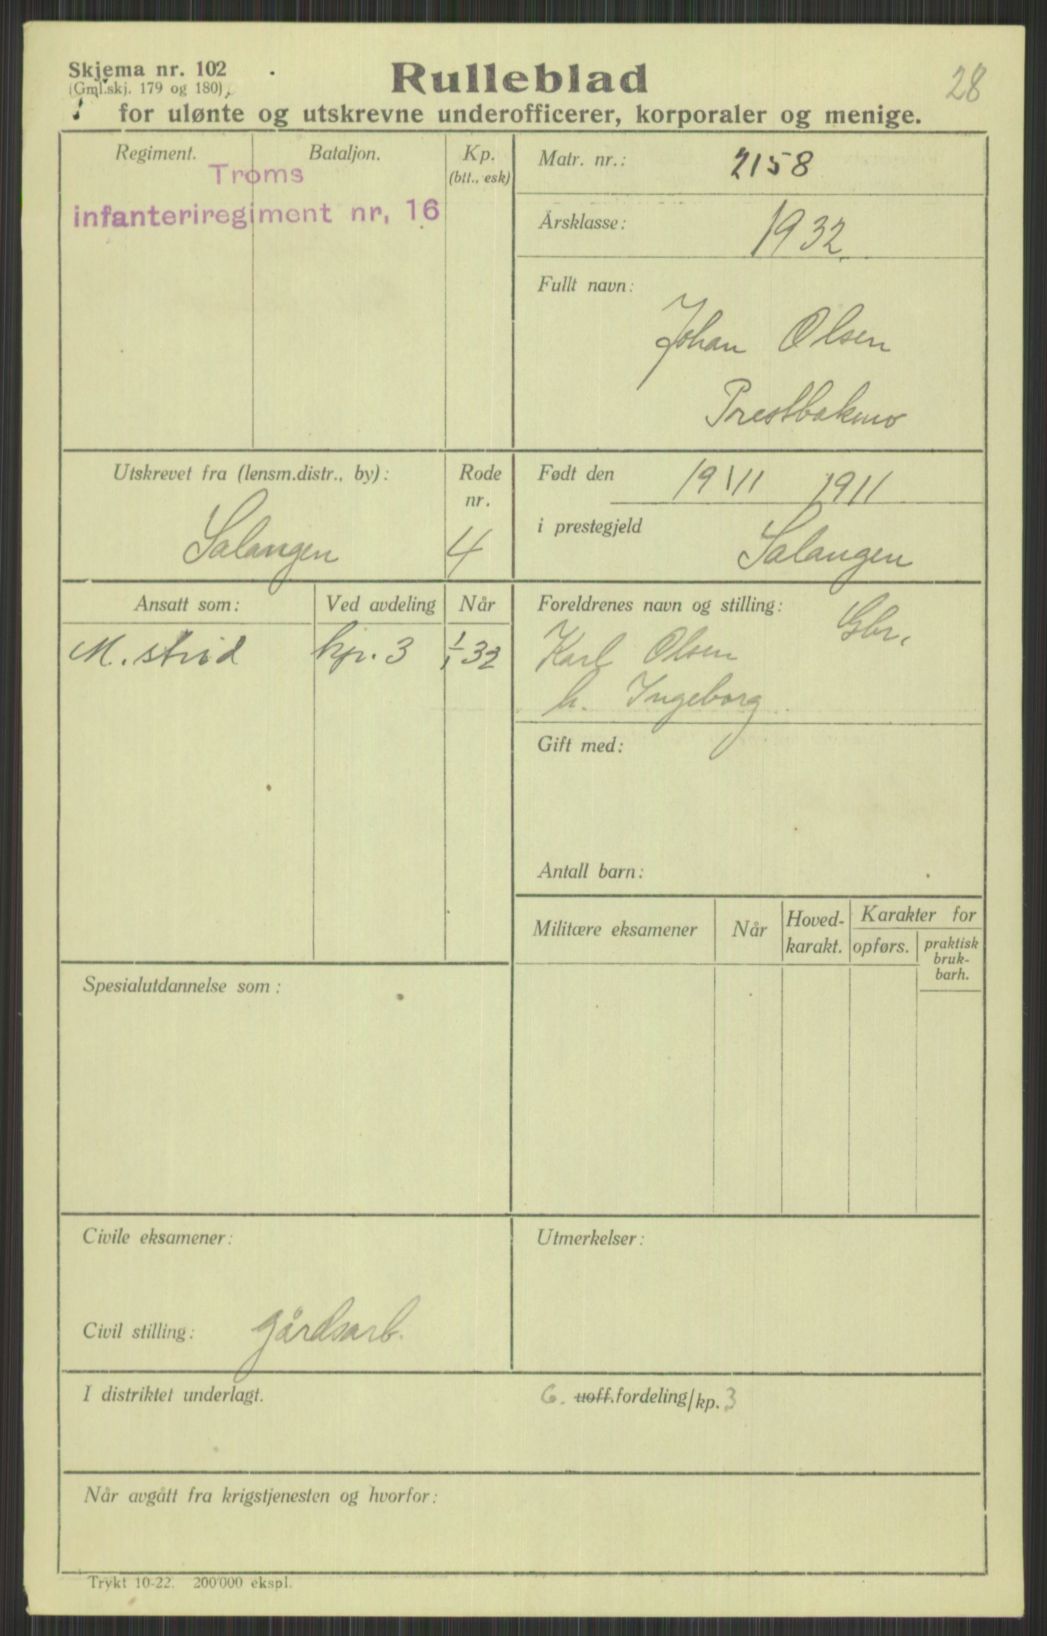 Skjema nr. 102
(Gml.skj. 179 og 180).
Rulleblad
28
for ulønte og utskrevne underofficerer, korporaler og menige.
Regiment.
Bataljon.
Kp.
(btt., esk)
Troms
infanteriregiment nr, 16
Matr. nr.: 2158
Årsklasse: 1932
Fullt navn:
Johan Olsen
Prestbakmo
Utskrevet fra (lensm.distr., by):
Salangen
Rode
nr.
4
Født den 19 1911
i prestegjeld Salangen
Ansatt som:
Ved avdeling
Når
M. strid
kp. 3
1/1 32
Foreldrenes navn og stilling: Gbr.
Karl Olsen
h. Ingeborg
Gift med:
Antall barn:
Militære eksamener
Når
Hoved-
karakt.
Karakter for
opførs.
praktisk
bruk-
barh.
Spesialutdannelse som:
Civile eksamener:
Utmerkelser:
Civil stilling: gårdsarb.
I distriktet underlagt.
6. uoff.fordeling/kp. 3
Når avgått fra krigstjenesten og hvorfor:
Trykt 10-22. 200'000 ekspl.